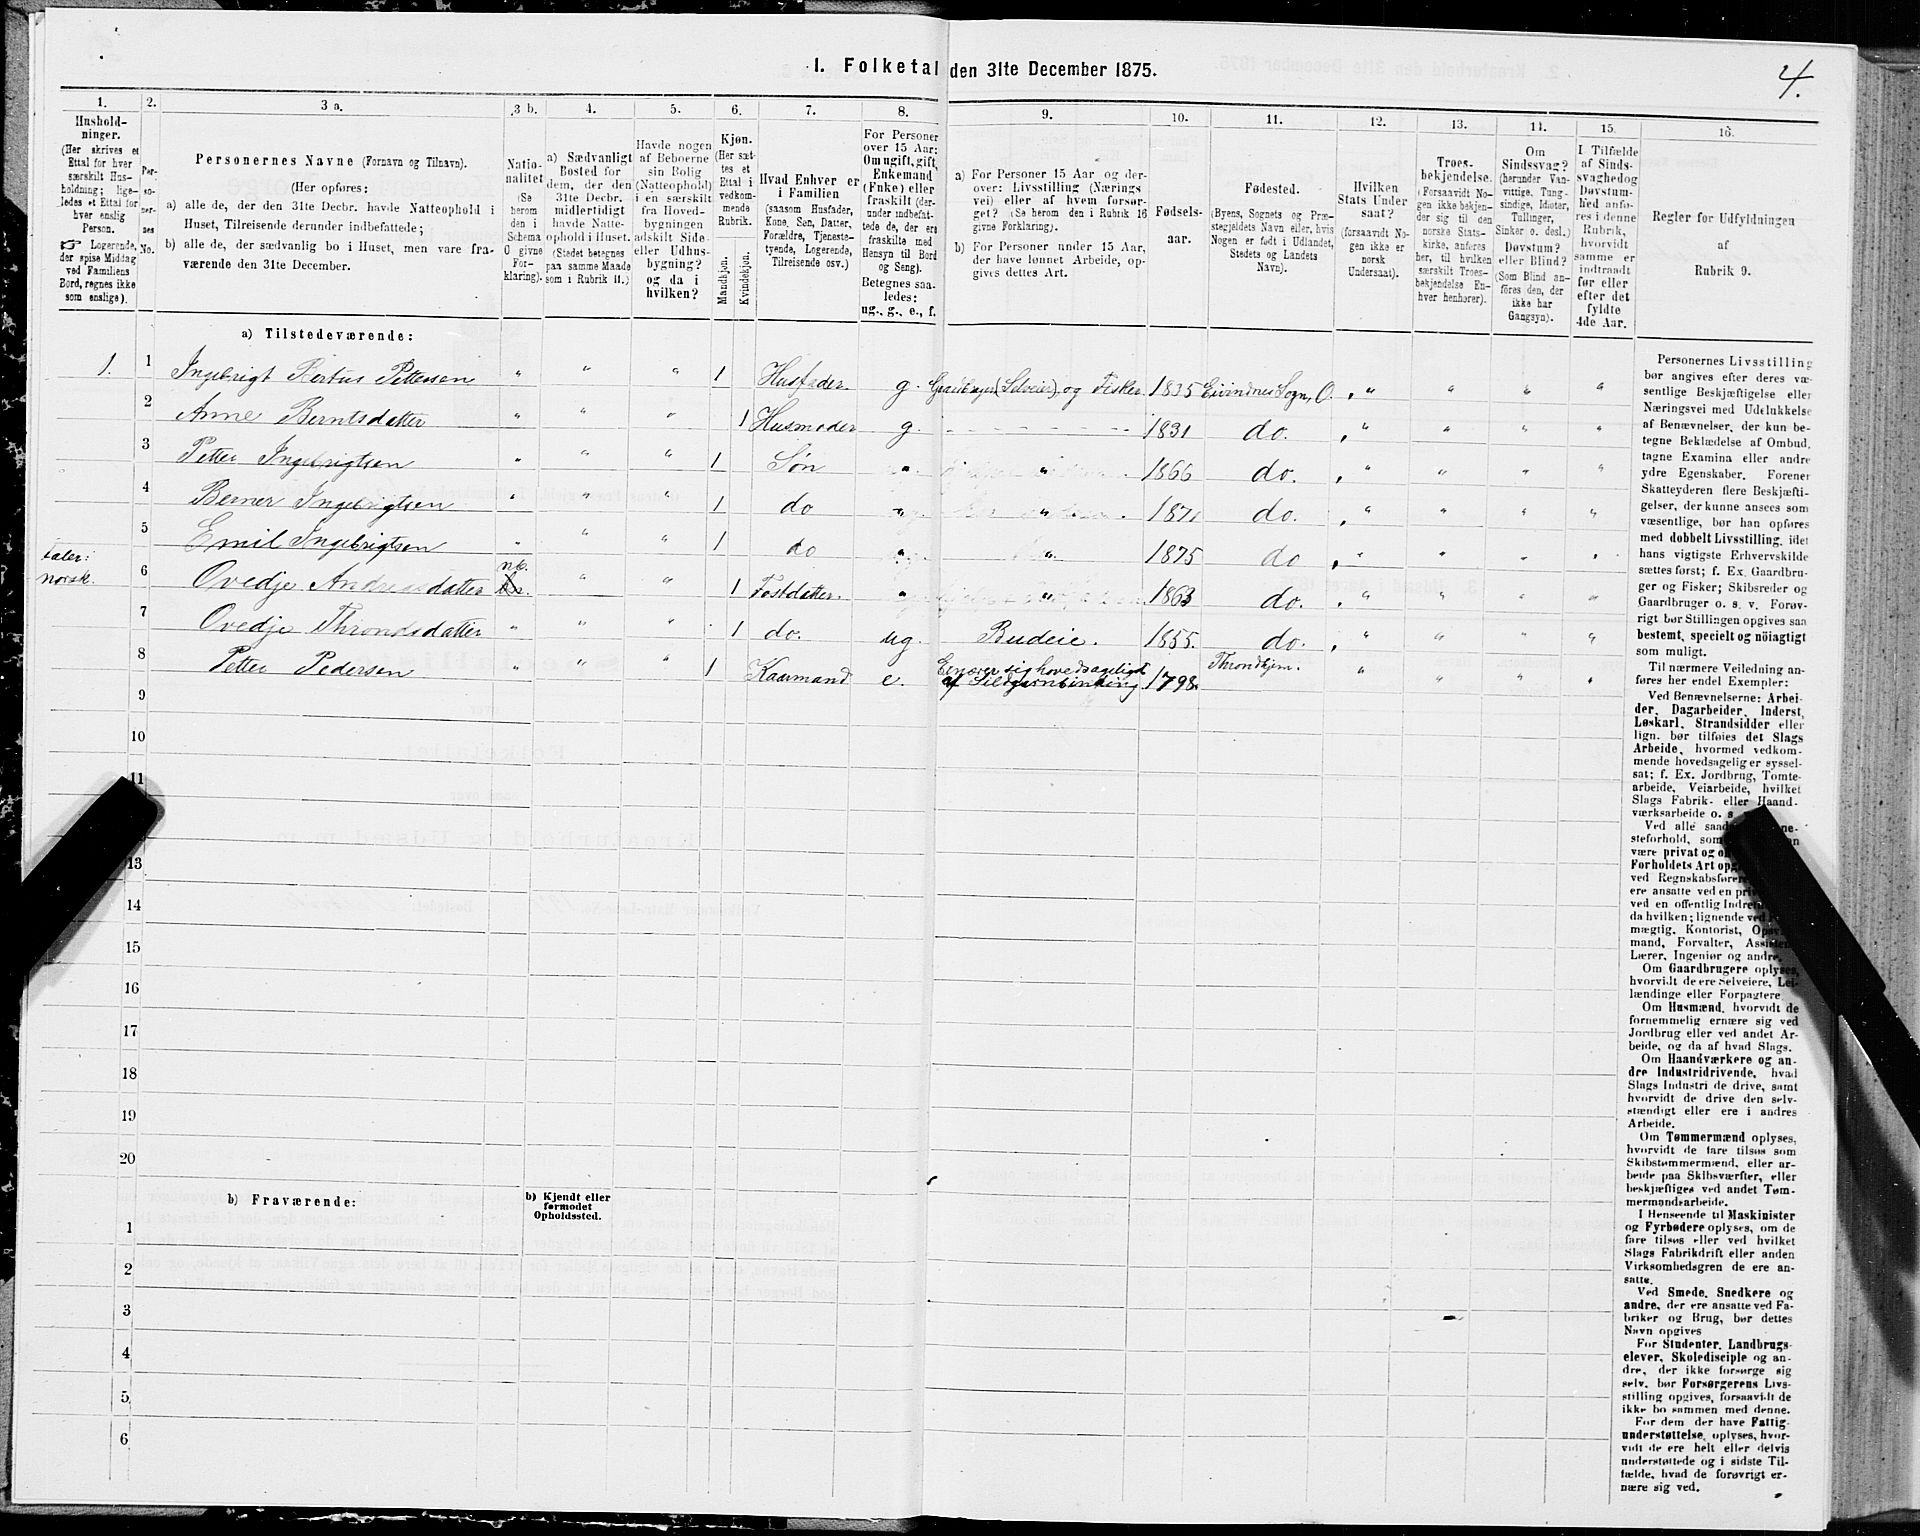 I. Folketal den 31te December 1875.
4.
1.
Hushold-
ninger.
(Her skrives et
Ettal for hver
særskilt Hus-
holdning; lige-
ledes et Ettal for
hver enslig
Person.
☞ Logerende,
der spise Middag
ved Familiens
Bord, regnes ikke
som enslige).
2.
Per-
so-
ner-
nes
No.
3 a.
Personernes Navne (Fornavn og Tilnavn).
(Her opføres:
a) alle de, der den 31te Decbr. havde Natteophold i
Huset, Tilreisende derunder indbefattede;
b) alle de, der sædvanlig bo i Huset, men vare fra-
værende den 31te December.
3 b.
Natio-
nalitet
(Se
herom
den i
Schema
O givne
For-
klaring).
4.
a) Sædvanligt
Bosted for
dem, der den
31te Decbr.
midlertidigt
havde Natte-
ophold i Huset.
(Stedet betegnes
paa samme Maade
som i Rubrik 11.)
5.
Havde nogen
af Beboerne
sin Bolig
(Natteophold)
i en særskilt
fra Hoved-
bygningen
adskilt Side-
eller Udhus-
bygning?
og da i
hvilken?
6.
Kjøn.
(Her sæt-
tes et
Ettal i
vedkom-
mende
Rubrik.
Mandkjøn.
Kvindekjøn.
7.
Hvad Enhver er
i Familien
(saasom Husfader,
Kone, Søn, Datter,
Forældre, Tjeneste-
tyende, Logerende,
Tilreisende osv.)
8.
For Personer
over 15 Aar:
Om ugift, gift,
Enkemand
(Enke) eller
fraskilt (der-
under indbefat-
tede de, der ere
fraskilte med
Hensyn til Bord
og Seng).
Betegnes saa-
ledes:
ug., g., e., f.
9.
a) For Personer 15 Aar og der-
over: Livsstilling (Nærings
vei) eller af hvem forsør-
get? (Se herom den i Rubrik 16
givne Forklaring).
b) For Personer under 15 Aar,
der have lønnet Arbeide, op-
gives dettes Art.
10.
Fødsels-
aar.
11.
Fødested.
(Byens, Sognets og Præ-
stegjeldets Navn eller, hvis
Nogen er født i Udlandet,
Stedets og Landets
Navn).
12.
Hvilken
Stats Under
saat?
(forsaavidt No-
gen ikke er
norsk
Undersaat).
13.
Troes-
bekjendelse.
(Forsaavidt No-
gen ikke bekjen-
der sig til den
norske Stats-
kirke, anføres
her, til hvilken
særskilt Troes-
bekjendelse En-
hver henhører).
14.
Om
Sindssvag?
(herunder Van-
vittige, Tung-
sindige, Idioter,
Tullinger,
Sinker o. desl.)
Døvstum?
eller Blind?
(Som Blind an-
føres den, der
ikke har
Gangsyn).
15.
I Tilfælde
af Sinds-
svaghed og
Døvstum-
hed anfø-
res i denne
Rubrik,
hvorvidt
samme er
indtraadt
før eller
efter det
fyldte
4de Aar.
16.
Regler for Udfyldningen
af
Rubrik 9.
a) Tilstedeværende:
1. 1 Ingebrigt Pettersen " " " 1 Husfader g. Gaardbruger (Selveier) og Fisker 1835 Eivindnes Sogn, O. " " " "
2 Anne Berntsdatter " " " 1 Husmoder g. 1831 do. " " " "
3 Petter Ingebrigtsen " " " 1 Søn " " 1866 do. " " " "
4 Berner Ingebrigtsen " " " 1 do " " 1871 do. " " " "
5 Emil Ingebrigtsen " " " 1 do " " 1875 do " " " "
taler: norsk. 6 Ovedje Andreasdatter " " 1 Fostdatter. " " 1863 do. " " " "
7 Ovedje Throndsdatter " " " 1 do. ug. Budeie. 1855. do. " " " "
8 Petter Pedersen " " " 1 Kaarmand e. Ernærer sig hovedsageligt
af Sildgarnbinding 1798. Throndhjm. " " " "
9
10
11
13
14
15
16
17
18
19
20
b) Fraværende:
b) Kjendt eller
formodet
Opholdssted.
1
2
3
4
5
6
Personernes Livsstilling
bør angives efter deres væ-
sentlige Beskjæftigelse eller
Næringsvei med Udelukkelse
af Benævnelser, der kun be-
tegne Beklædelse af Ombud,
tagne Examina eller andre
ydre Egenskaber. Forener
Skatteyderen flere Beskjæfti-
gelser, der kunne ansees som
væsentlige, bør han opføres
med dobbelt Livsstilling, idet
hans vigtigste Erhvervskilde
sættes først; f. Ex. Gaardbru-
ger og Fisker; Skibsreder og
Gaardbruger o. s. v. Forøv-
rigt bør Stillingen opgives saa
bestemt, specielt og nøiagtigt
som muligt.
Til nærmere Veiledning an-
føres her endel Exempler:
Ved Benævnelserne: Arbei-
der, Dagarbeider, Inderst,
Løskarl, Strandsidder eller
lign. bør tilføies det Slags
Arbeide, hvormed vedkom-
mende hovedsagelig er syssel-
sat; f. Ex. Jordbrug, Tomte-
arbeide, Veiarbeide, hvilket
Slags Fabrik- eller Haand-
værksarbeide o. s
Ved alle
steforhold, som
være privat og
Forholdets Art
ved Regnskabsførere
ere ansatte ved en
ved en offentlig
da hvilken; lignende ved
mægtig, Kontorist,
mand, Forvalter,
Lærer, Ingeniør og andre.
Om Gaardbrugere oplyses,
hvorvidt de ere Selveiere, Lei-
lændinge eller Forpagtere.
Om Husmænd, hvorvidt de
fornemmelig ernære sig ved
Jordbrug eller ved andet Ar-
beide, og da af hvad Slags.
Om Haandværkere og an-
dre Industridrivende, hvad
Slags Industri de drive, samt
hvorvidt de drive den selv-
stændigt eller ere i andres
Arbeide.
Om Tømmermænd oplyses,
hvorvidt de fare tilsøs som
Skibstømmermænd, eller ar-
beide paa Skibsværfter, eller
beskjæftiges ved andet Tøm-
mermandsarbeide.
I Henseende til Maskinister
og Fyrbødere oplyses, om de
fare tilsøs eller ved hvilket
Slags Fabrikdrift eller anden
Virksomhedsgren de ere an-
satte.
Ved Smede, Snedkere og
andre, der ere ansatte ved Fa-
briker og Brug, bør dettes
Navn opgives
For Studenter, Landbrugs-
elever, Skoledisciple og an-
dre, der ikke forsørge sig
selv, bør Forsørgerens Livs-
stilling opgives, forsaavidt de
ikke bo sammen med denne.
For dem, der have Fattig-
understøttelse, oplyses, hvor-
vidt de ere helt eller delvis
understøttede og i sidste Til-
fælde, hvad de forøvrigt er-
nære sig ved.